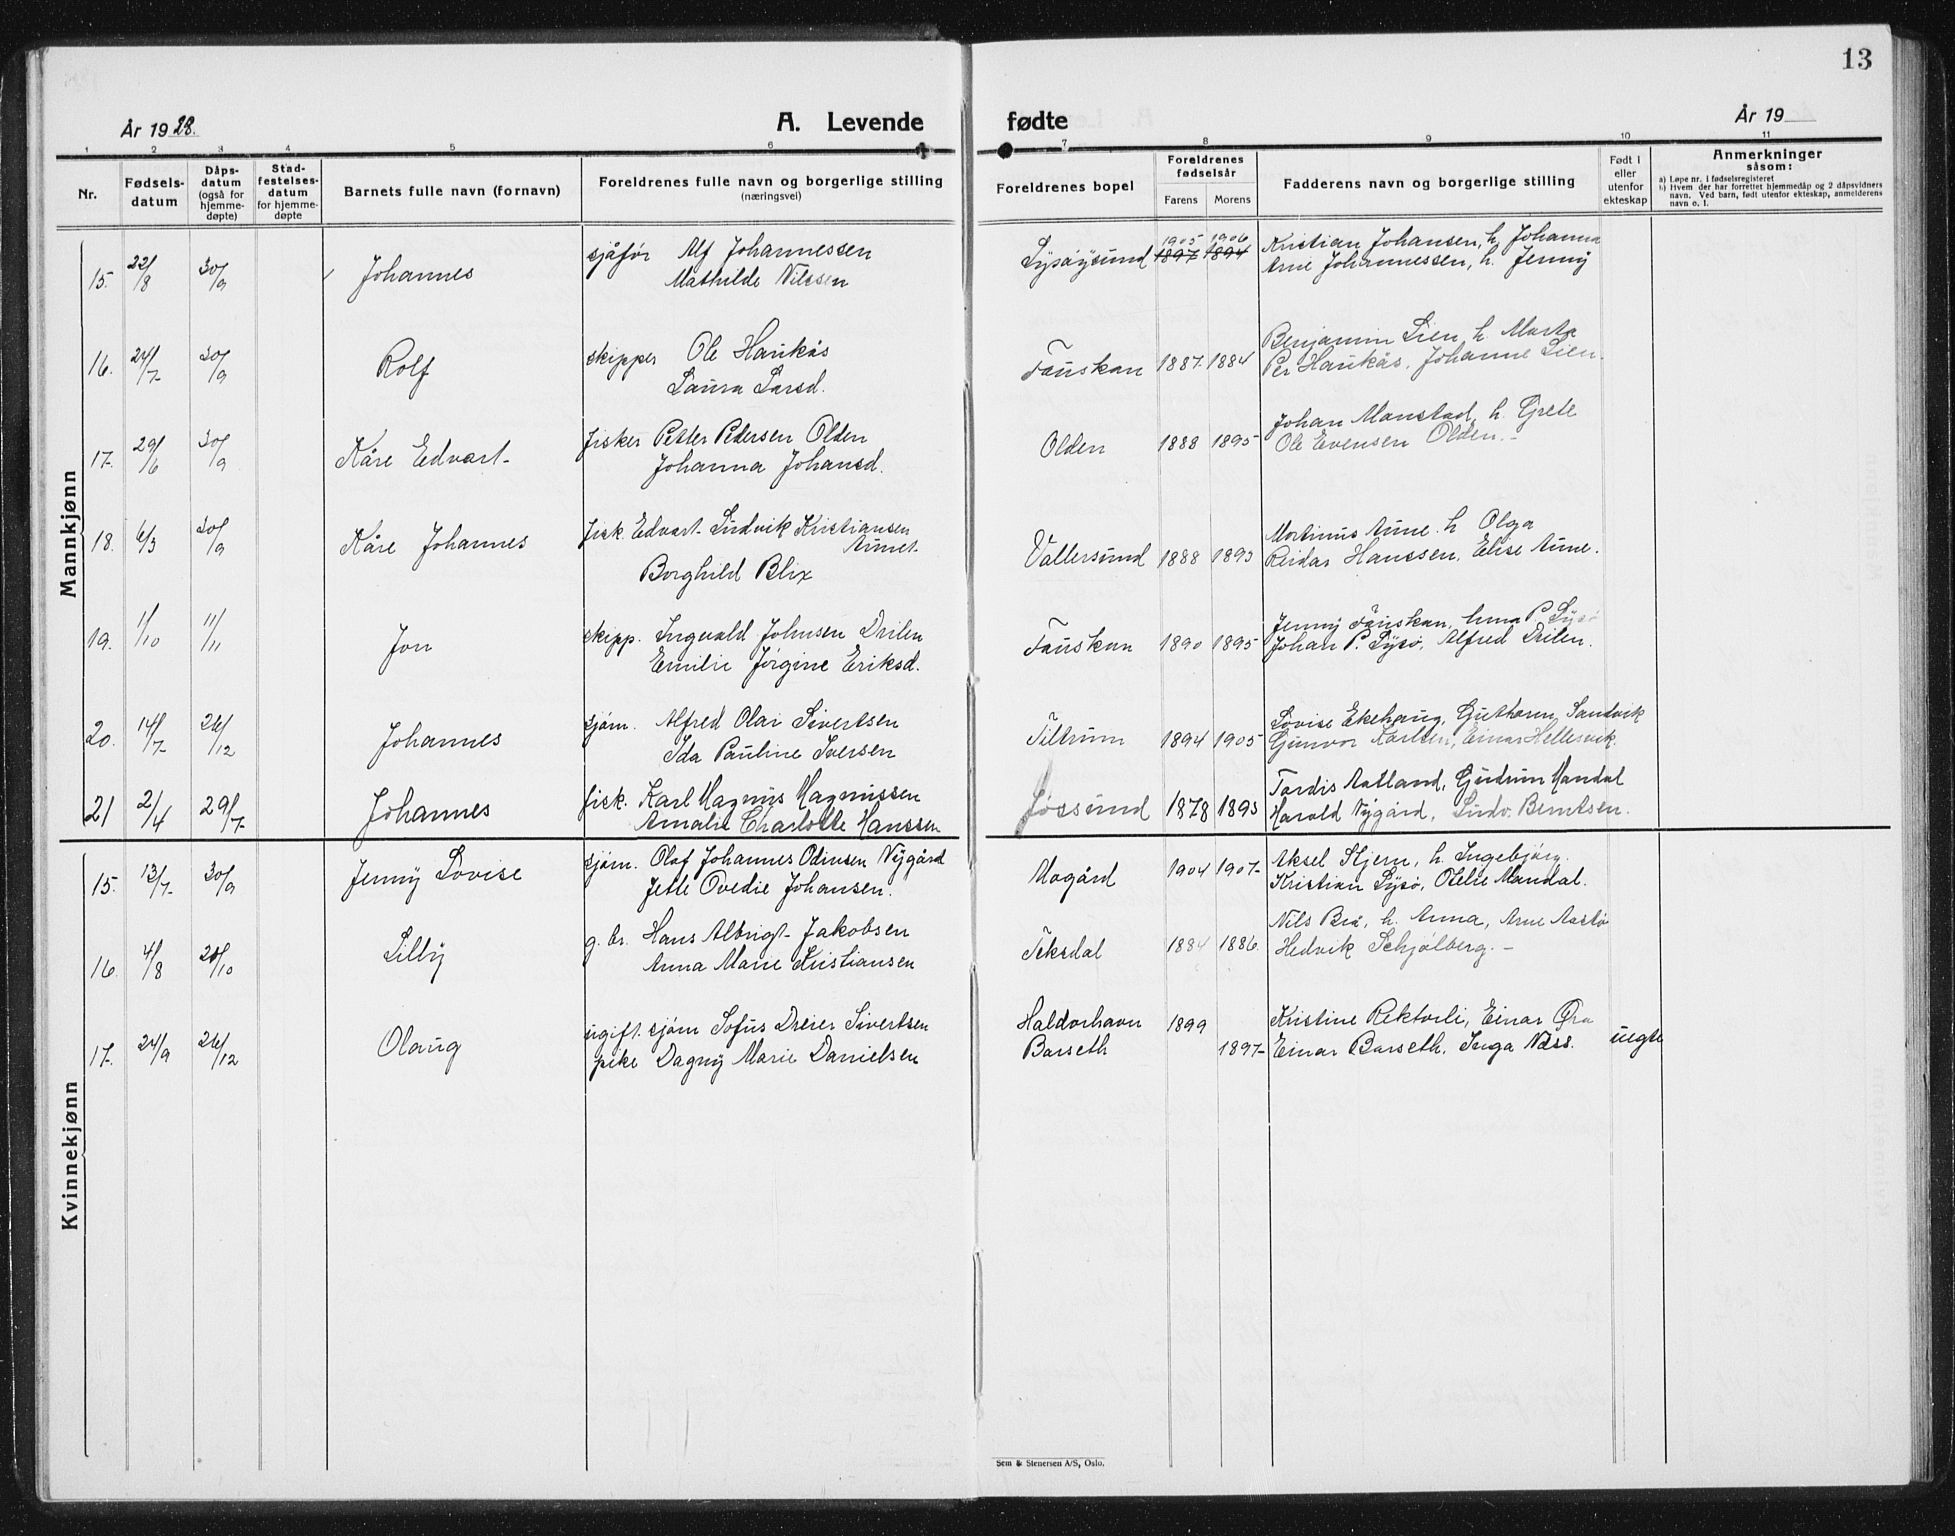 13
År 1928.
A. Levende
fødte
År 19
1 2 3 4 5 6 7 8 9 10 11
Nr.
Fødsels-
datum
Dåps-
datum
(også for
hjemme-
døpte)
Stad-
festelses-
datum
for hjemme-
døpte
Barnets fulle navn (fornavn)
Foreldrenes fulle navn og borgerlige stilling
(næringsvei)
Foreldrenes bopel
Foreldrenes
fødselsår
Farens Morens
Fadderens navn og borgerlige stilling
Født i
eller
utenfor
ekteskap
Anmerkninger
såsom:
a) Løpe nr. i fødselsregisteret
b) Hvem der har forrettet hjemmedåp og 2 dåpsvidners
navn. Ved barn, født utenfor ekteskap, anmelderens
navn o. l.
Mannkjønn
15. 22/8 30/9 Johannes
sjåfør Alf Johannessen
Mathilde Nilssen
Lysøysund 1905 1906
1897 1894
Kristian Johansen, h. Johanna
Arne Johannessen, h. Jenny
16. 24/7 30/9 Rolf
skipper Ole Haukås
Laura Larsd.
Fauskan 1887 1884
Benjamin Lien, h. Marta
Per Haukås, Johanne Lien.
17. 29/6 30/9 Kåre Edvart
fisker Petter Pedersen Olden
Johanna Johansd.
Olden 1888 1895
Johan Manstad, h. Grete
Ole Evensen Olden.
18. 6/3 30/9 Kåre Johannes
fisk. Edvart Ludvik Kristiansen
Aunet
Borghild Blix
Vallersund 1888 1893
Mortinus Aune. h Olga
Reidar Hanssen, Elise Aune.
19. 1/10 11/11 Jon
skipp. Ingvald Johnsen Drilen
Emilie Jørgine Eriksd.
Fauskan 1890 1895
Jenny Fauskan, Anna P. Lysø
Johan P. Lysø, Alfred Drilen.
20. 14/7 26/12 Johannes
sjøm. Alfred Olai Sivertsen
Ida Pauline Iversen
Tiltrum 1894 1905
Lovise Ekehaug, Guthorm Sandvik
Gunvor Karlsen, Einar Hellesvik.
21 2/4 29/7 Johannes
fisk. Karl Magnus Magnussen
Amalie Charlotte Hanssen
Jøssund 1878 1893
Tordis Aatland, Gudrun Mandal
Harold Nygård, Ludv. Berntsen.
Kvinnekjønn
15. 13/7 30/9 Jenny Lovise
sjøm. Olaf Johannes Odinsen Nygård
Jette Ovedie Johansen.
Mogård 1904 1907
Aksel Stjern, h. Ingebjørg.
Kristian Lysø, Otelie Mandal.
16. 4/8 /10 Lilly
g. br. Hans Albrigt Jakobsen
Anna Marie Kristiansen
Teksdal 1884 1886
Nils Brå, h. Anna, Arne
Hedvik Schjølberg.
17. 24/9 26/12 Olaug
ugift. sjøm Sofus Dreier Sivertsen
pike Dagny Marie Danielsen
Haldorhavn 1899
Barseth 1897
Kristine Rektorli, Einar Øra
Einar Barseth, Inga Næss.
uegte
Sem & Stenersen A/S, Oslo.